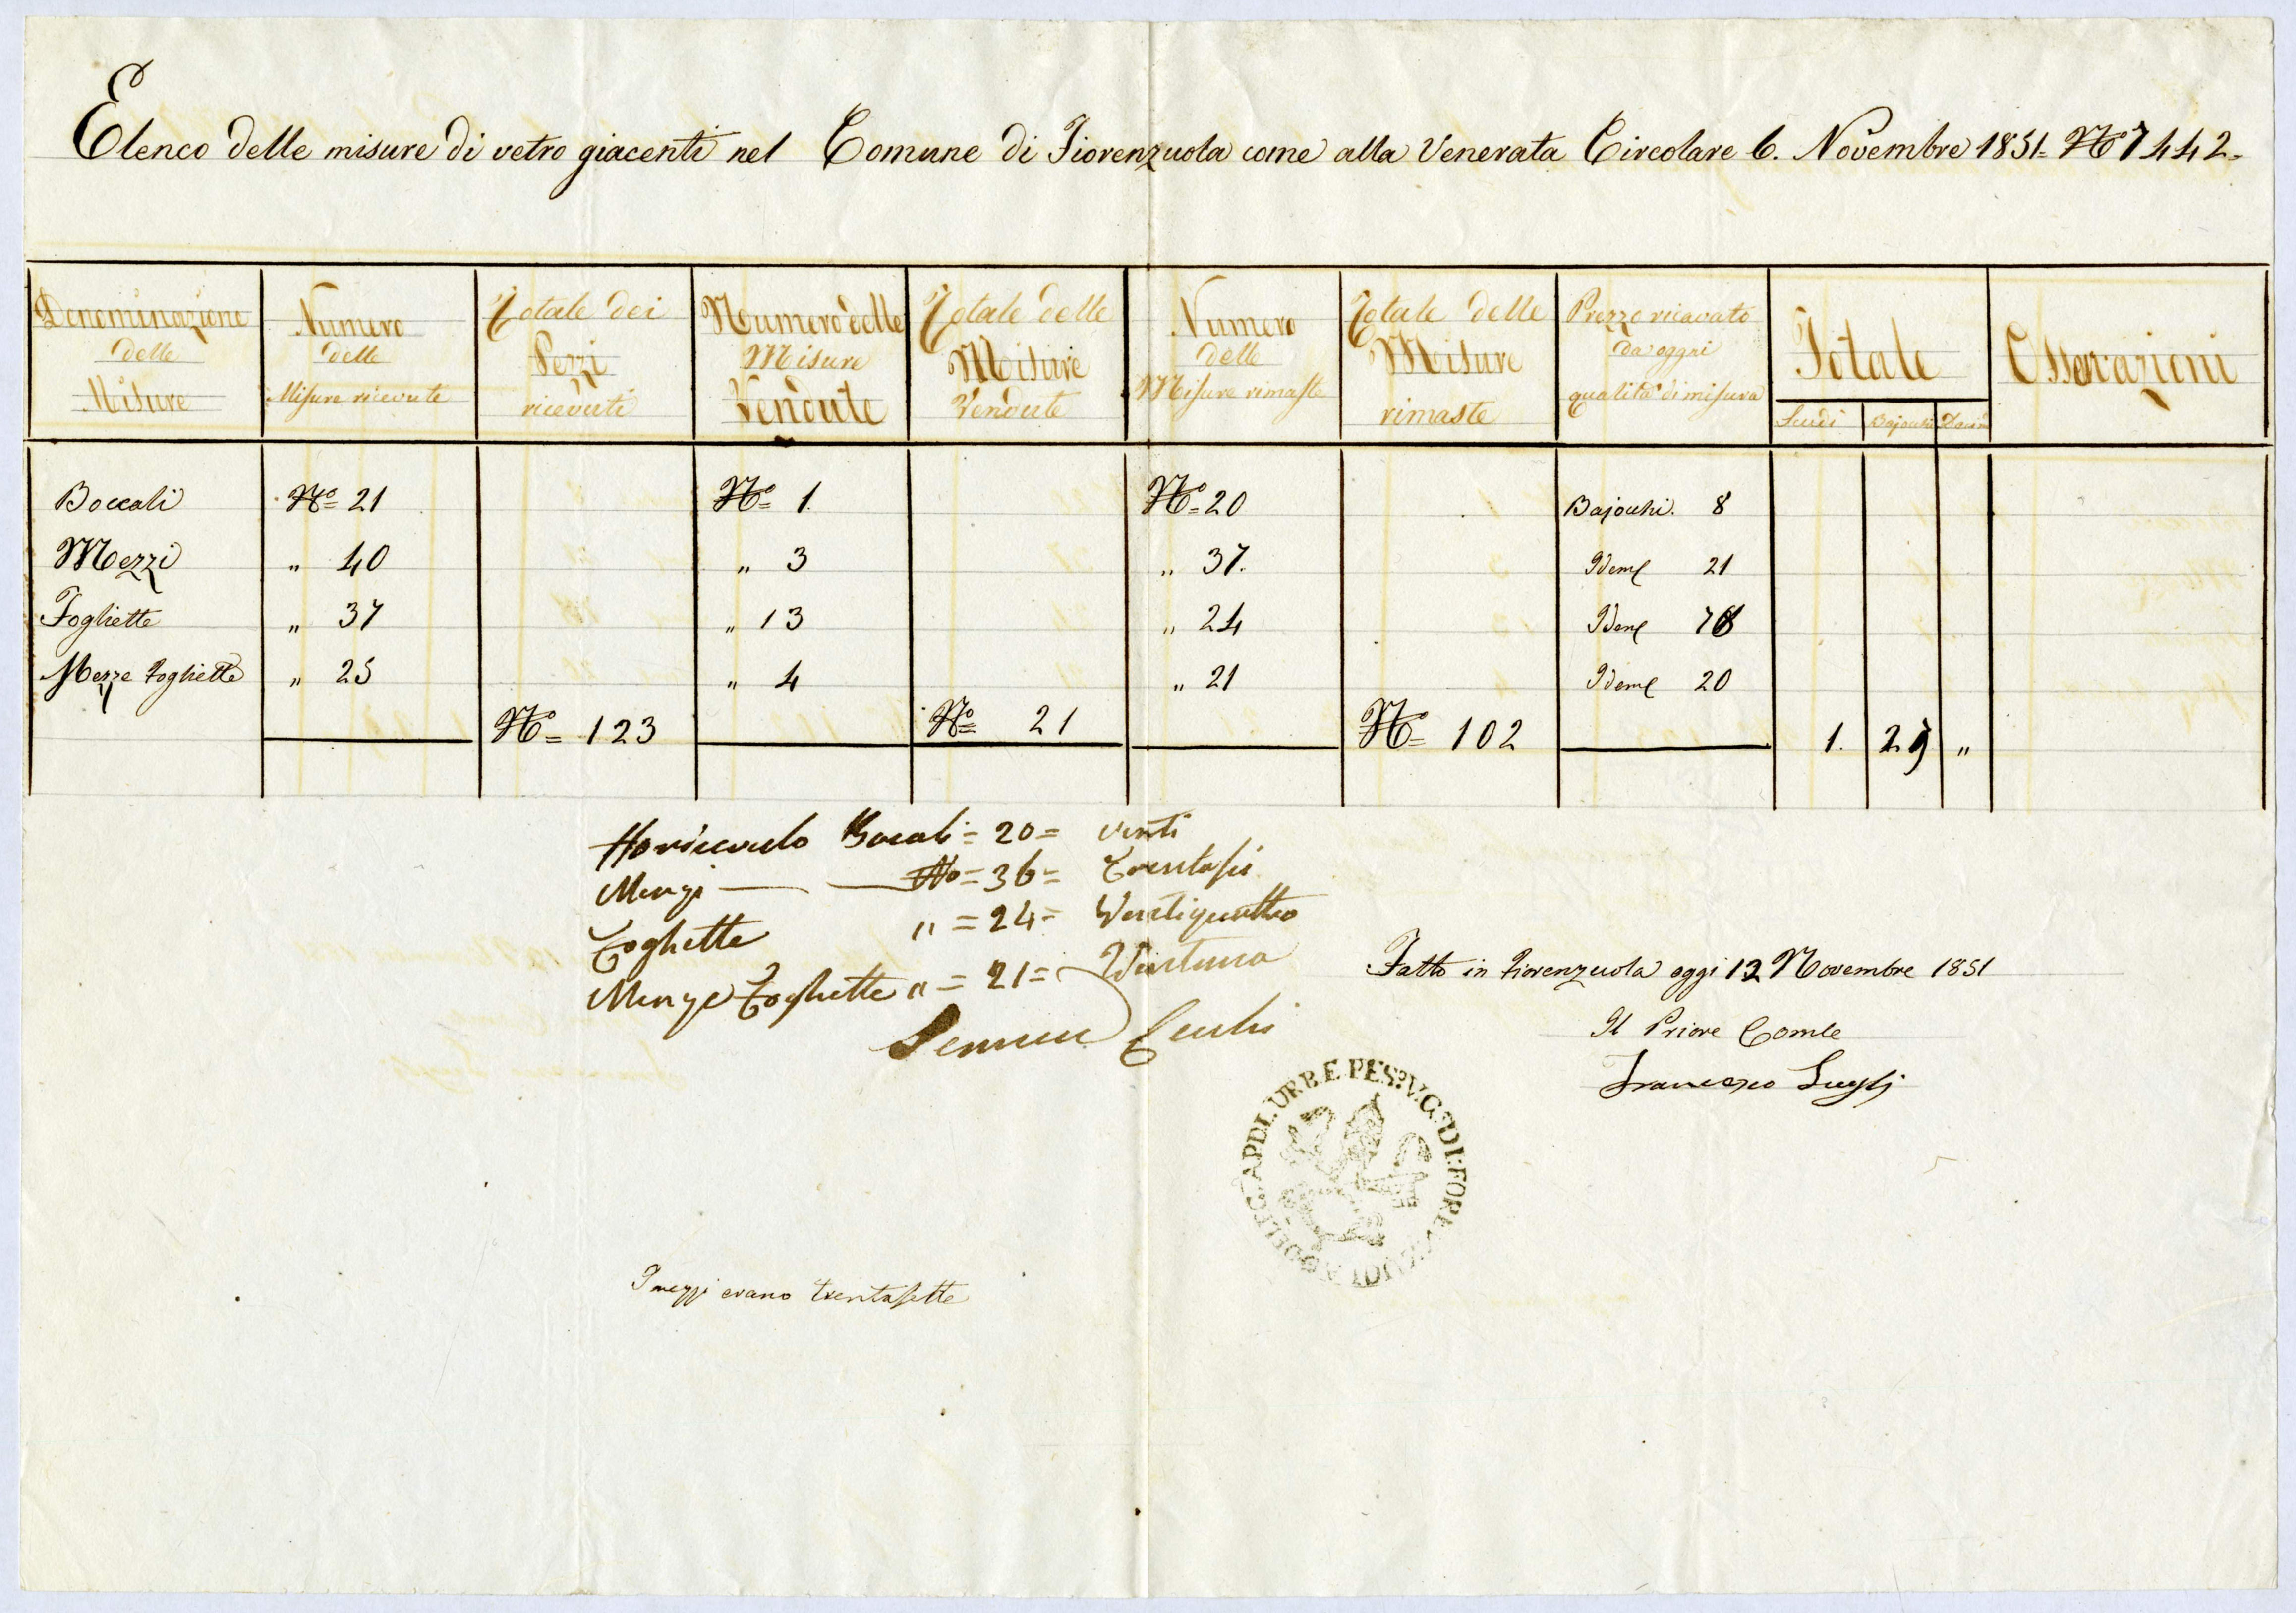 Elenco delle misure di vetro giacenti nel Comune di Fiorenzuola come alla Venerata Circolare 6. Novembre 1851= No 7442=
Denominazione delle Misure | Numero delle Misure ricevute | Totale dei Pezzi ricevuti | Numero delle Misure Vendute | Totale delle Misure Vendute | Numero delle Misure rimaste | Totale delle Misure rimaste | Prezzo ricavato da oggni qualità di misura | Totale | Osservazioni
Scudi | Bajocchi | Danari
Boccali | No= 21 | No= 1. | No= 20 | Bajocchi. 8
Mezzi | " 40 | " 3 | " 37. | Idem 21
Fogliette | " 37 | " 13 | " 24 | Idem
Mezze Fogliette | " 25 | " 4 | " 21 | Idem 20
No= 123 | No= 21 | No= 102 | 1. | 2 | "
Ho ricevuto Bocali = 20 = venti
Menzi No = 36 = Trentasei
Foghette " = 24 = Ventiquattro
Menze Foghette " = 21 = Ventuno
Fatto in Fiorenzuola oggi 12 Novembre 1851
Il Priore Comle
Francesco
DELEG. APDI. URB. E PES. V. G. DI.
I mezzi erano trentasette